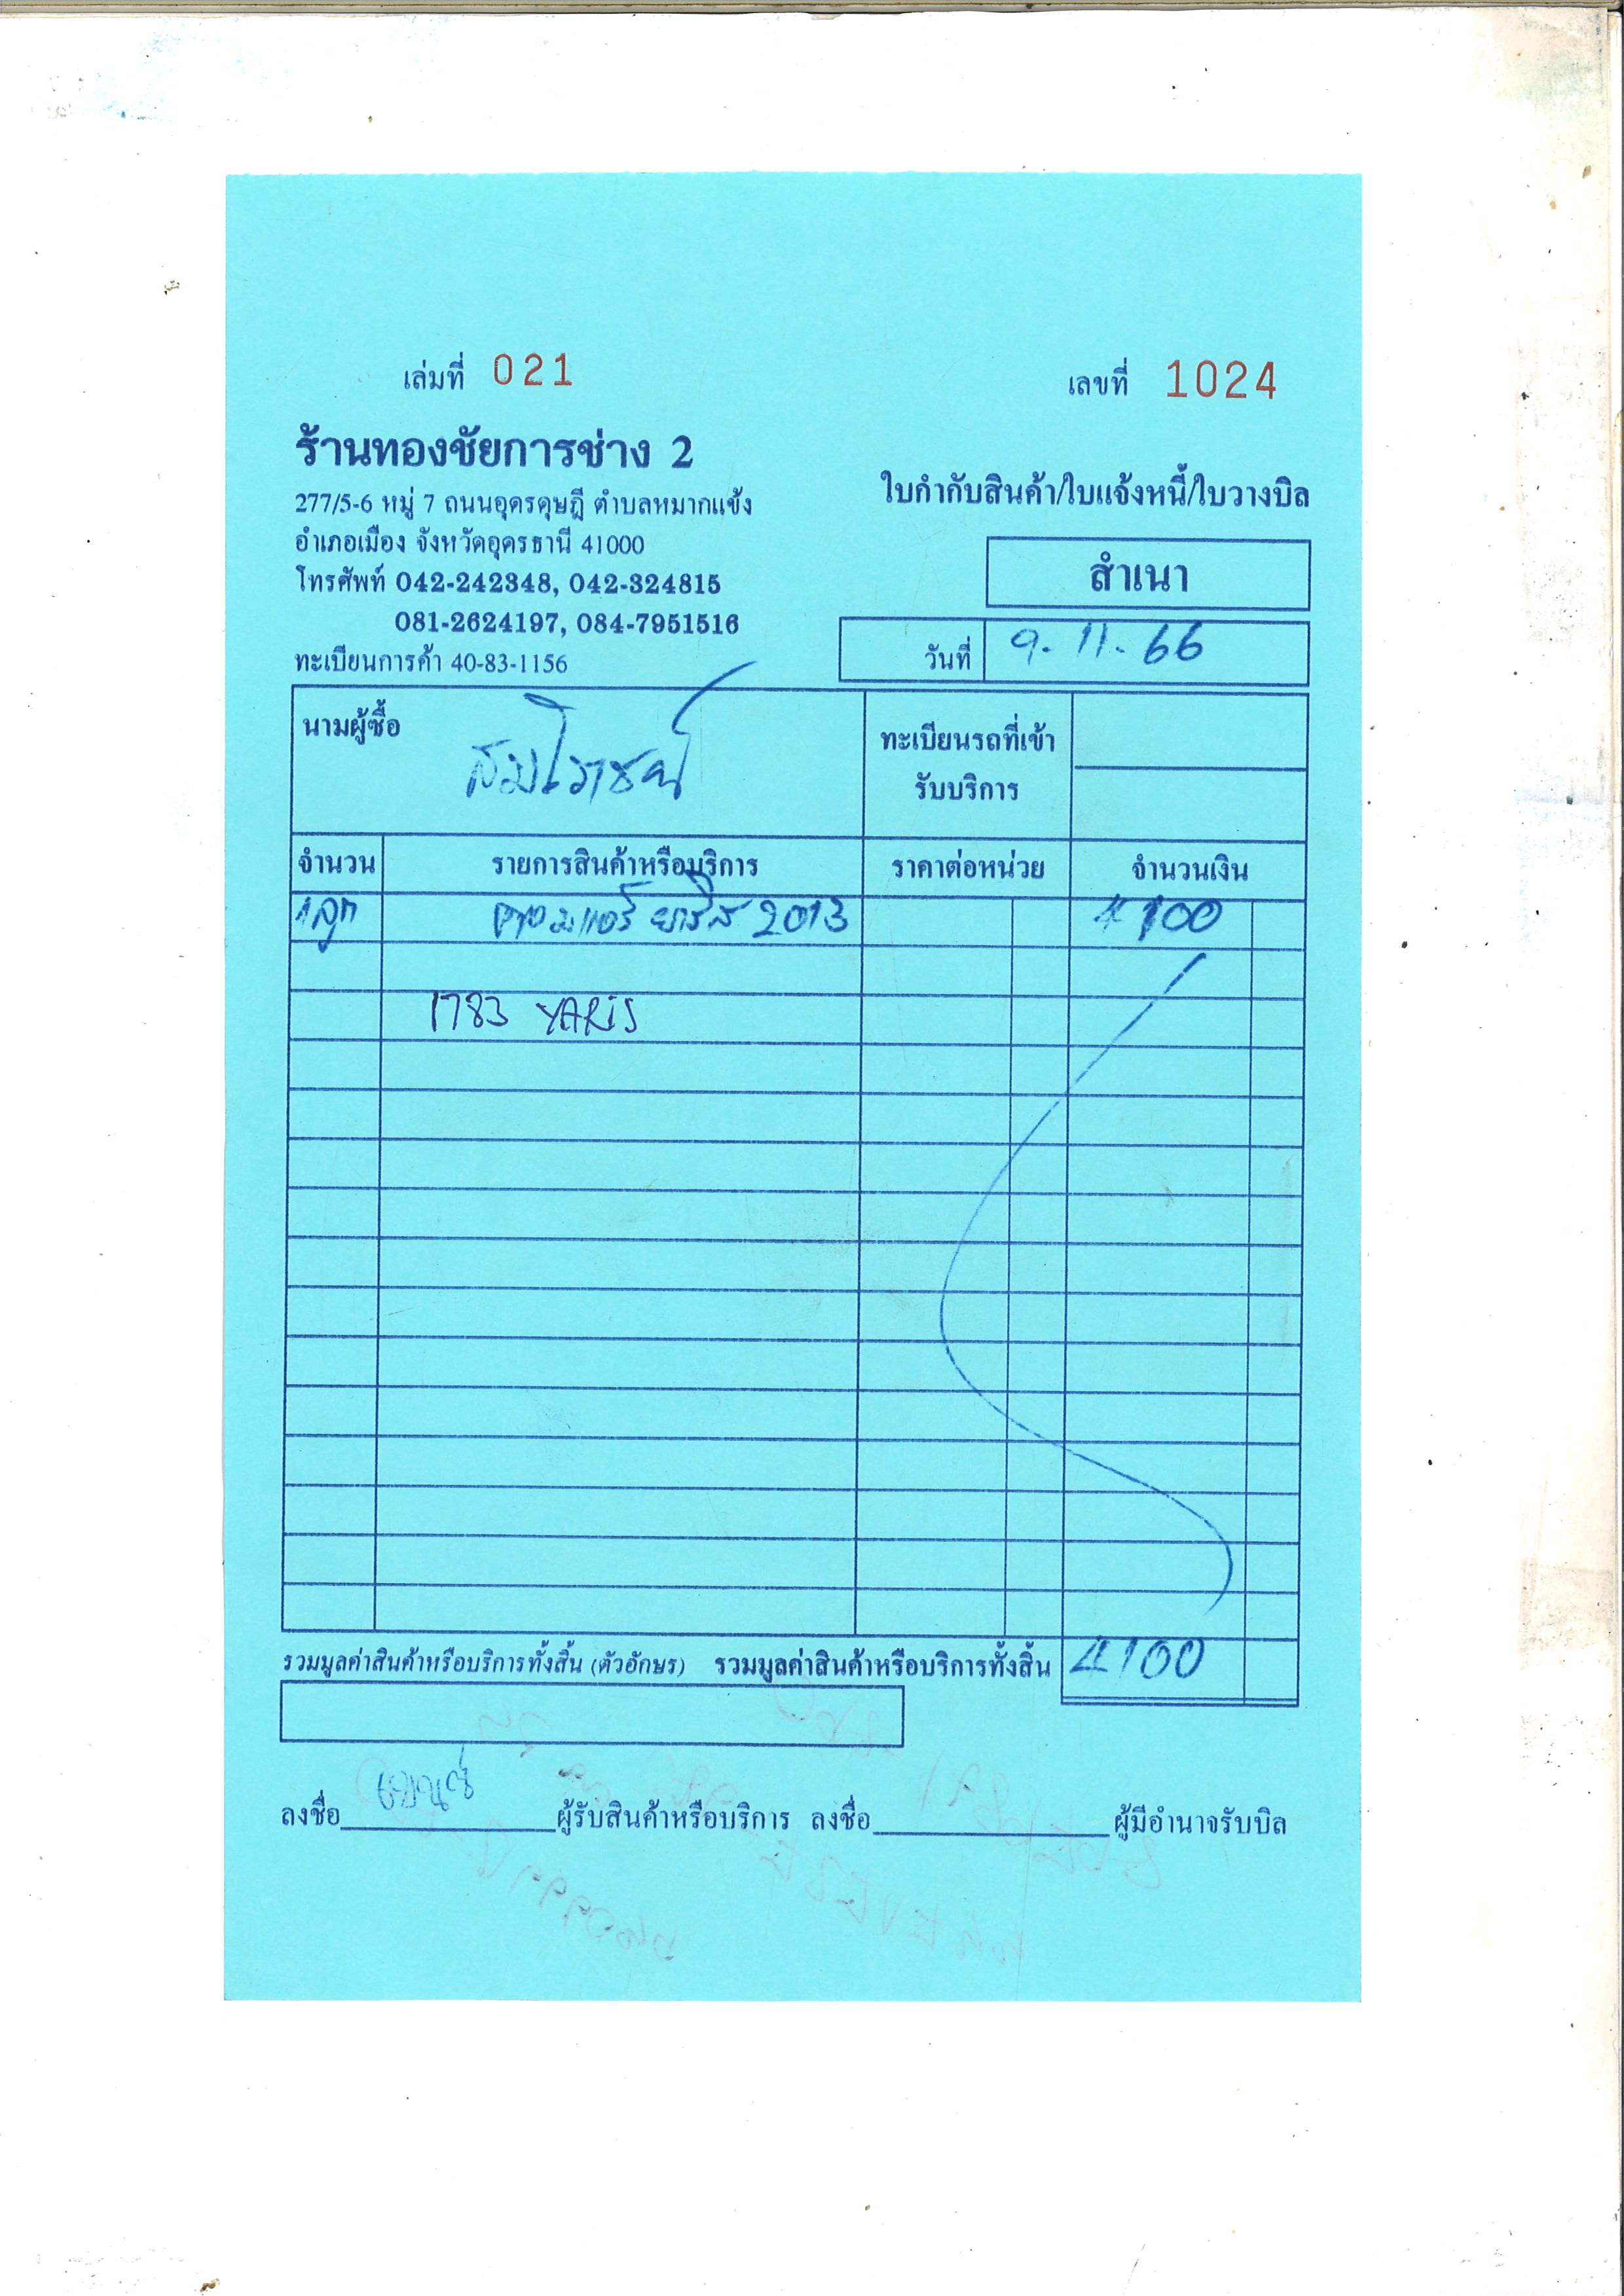 เล่มที่ 021 เลขที่ 1024
ร้านทองชัยการช่าง 2
277/5-6 หมู่ 7 ถนนอุดรดุษฎี ตำบลหมากแข้ง
ใบกำกับสินค้า/ใบแจ้งหนี้/ใบวางบิล
อำเภอเมือง จังหวัดอุดรธานี 41000
สำเนา
โทรศัพท์ 042-242348, 042-324815
081-2624197, 084-7951516
วันที่ 9-11-66
ทะเบียนการค้า 40-83-1156
นามผู้ซื้อ
ทะเบียนรถที่เข้า
รับบริการ
จำนวน รายการสินค้าหรือบริการ ราคาต่อหน่วย จำนวนเงิน
1 ลูก คอมแอร์ ยาริส 2013 4100
1783 YARIS
รวมมูลค่าสินค้าหรือบริการทั้งสิ้น (ตัวอักษร) รวมมูลค่าสินค้าหรือบริการทั้งสิ้น 4100
ลงชื่อ ผู้รับสินค้าหรือบริการ ลงชื่อ ผู้มีอำนาจรับบิล